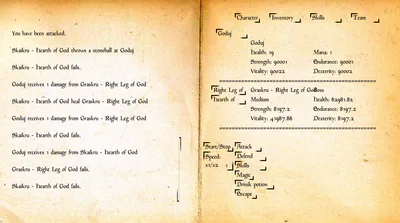 You have been attacked.
Skaikru - Hearth of God throws a stoneball at Goduj
Skaikru - Hearth of God fails.
Goduj receives 1 damage from Graskru - Right Leg of God
Skaikru - Hearth of God heal Graskru - Right Leg of God
Skaikru - Hearth of God fails.
Goduj receives 2 damage from Graskru - Right Leg of God
Skaikru - Hearth of God fails.
Goduj receives 2 damage from Skaikru - Hearth of God
Graskru - Right Leg of God fails.
Skaikru - Hearth of God fails.
Character Inventory Skills Team
Goduj
Goduj
Health: 19 Mana: 1
Strength: 90001 Endurance: 90001
Vitality: 90022 Dexterity: 90002
Right Leg of Graskru - Right Leg of God Boss
Hearth of Medium Health: 62981.82
Strength: 8197.2 Endurance: 8197.2
Vitality: 41987.88 Dexterity: 8197.2
Start/Stop Attack
Speed: Defend
1 Skills
Magic
Drink potion
Escape